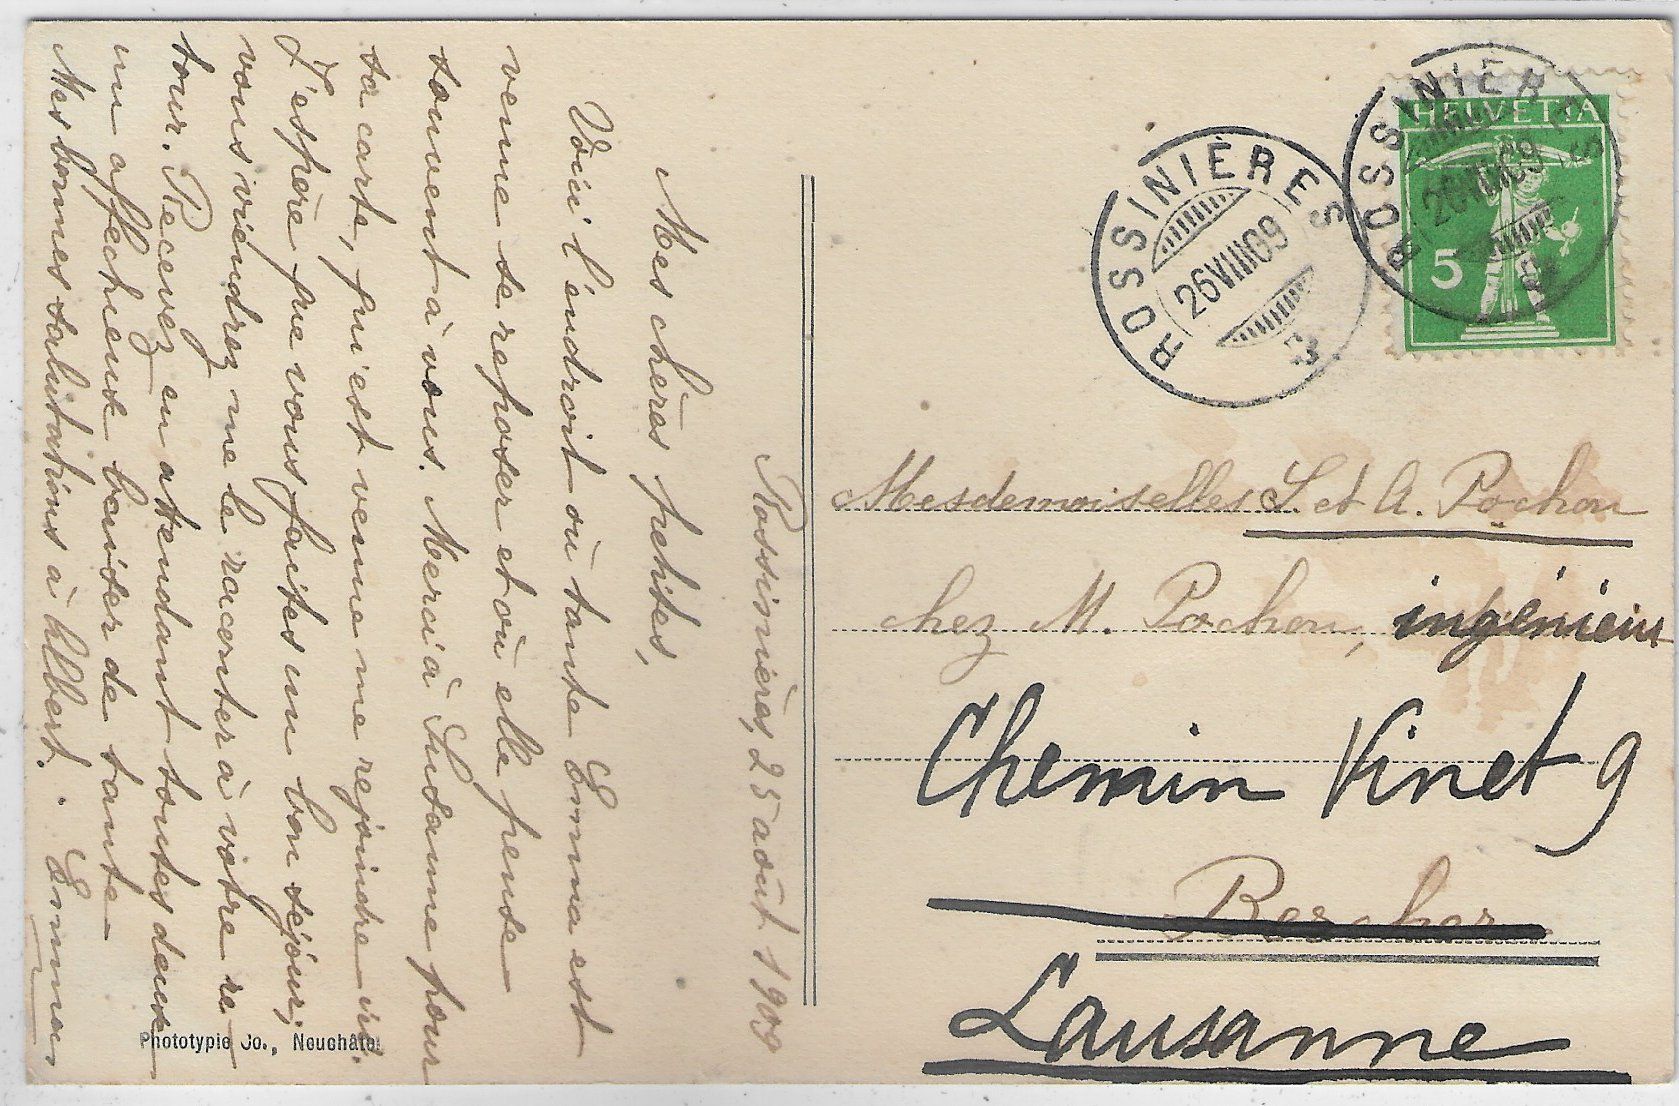 Rossinières, 25 août 1909
Mes chères petites,
Voici l'endroit où tante Emma est
venue se reposer et où elle pense
souvent à vous. Merci à Susanne pour
sa carte, qui est venue me rejoindre ici.
J'espère que vous faites un bon séjour,
vous viendrez me le raconter à votre re-
tour. Recevez en attendant toutes deux
un affectueux baiser de tante
Mes bonnes salutations à Albert. Emma
Phototypie Co., Neuchâtel
ROSSINIÈRES
26 VIII 09
3
ROSSINIÈRES
26 VIII 09
HELVETIA
5
Mesdemoiselles S. et A. Pochon
chez M. Pochon, ingénieur
Chemin Vinet 9
Bercher
Lausanne